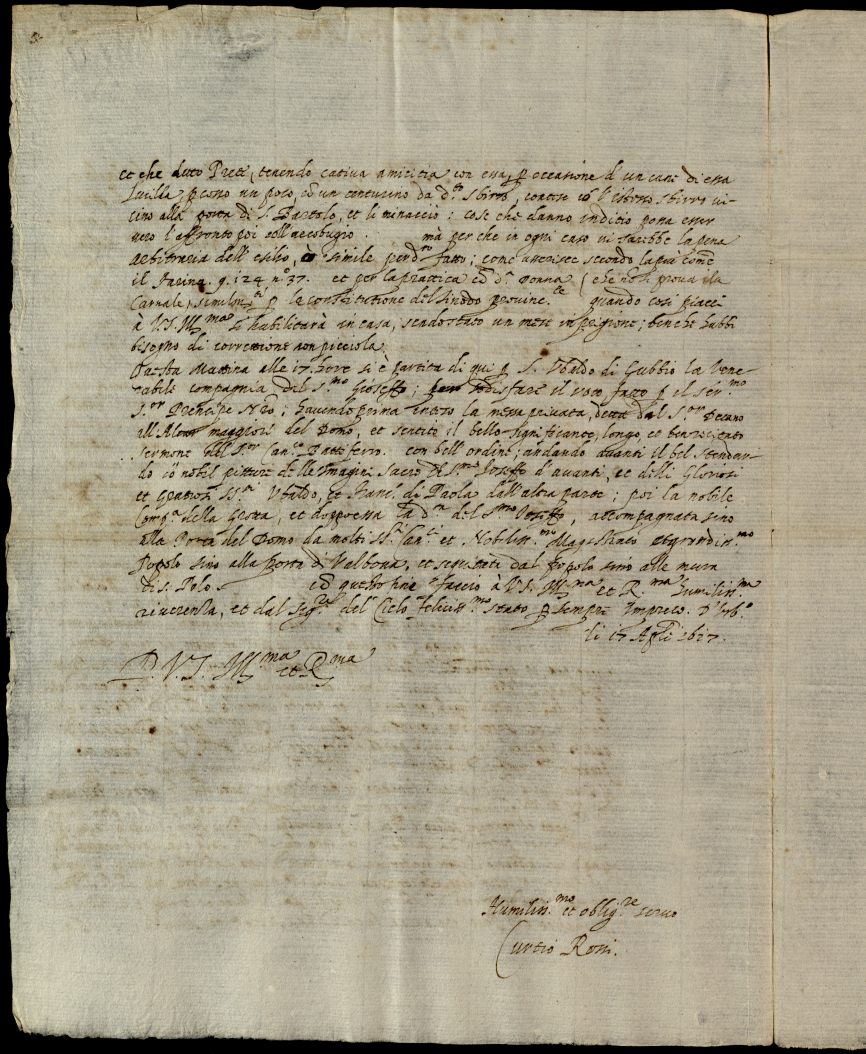 et che detto Prete, tenendo cativa amicitia con essa, p occasione d'un cane di essa
Lucilla, pcosso un poco, cō un centurino da d.to sbirro, contese cō l'istesso sbirro vi-
cino alla porta di S. Bartolo, et li minacciò: cose che danno inditio possa esser
vero l'affronto poi coll'arcobugio. mà per che in ogni caso vi sarebbe la pena
arbitraria dell'esilio, ò simile per d.to fatto; come asserisce secondo la più comē
il Farina. q. 124 n.º 37. et per la prattica cō d.a Donna (che nō si prova esser
Carnale) similm.te p la constitutione del sinodo provinc.le quando così piacci
à V.S. Ill.ma si habilitarà in casa, sendo stato un mese in prigione; benche habbi
bisogno di correttione non picciola.
Questa Mattina alle 17. hore si è partita di qui p S. Ubaldo di Gubbio la Vene-
rabile compagnia del S.mo Gioseffo; sodisfare il voto fatto p il Ser.mo
S.or Prencipe Nrō; havendo prima inteso la messa privata, detta dal S.or Decano
all'Altar maggiore del Domo, et sentito il bello significante, longo, et ben recitato
sermone del S.or Can.co Battiferro. con bell'ordine; andando avanti il bel stendar-
do cō nobil pitture delle Imagini Sacre di S.mo Ioseffo d'avanti, et delli Gloriosi
et gratiosi SS.i Ubaldo, et Franc.o di Paola dall'altra parte; poi la nobile
Comp.a della Grotta, et doppo essa la d.a del S.mo Ioseffo, accompagnata sino
alla Porta del Domo da molti SS.i Can.ci et Nobiliss.mo Magistrato et grandiss.mo
Popolo sino alla porta di Valbona, et seguitati dal Popolo sino alle mura
di S. Polo. cō questo fine faccio à V.S. Ill.ma et R.ma humiliss.ma
riverenza, et dal Sig.re del Cielo feliciss.mo stato p sempre Impreco. D'Urb.o
li 17 Aprīl 1627.
D. V. S. Ill.ma et R.ma
Humiliss.mo et oblig.re servo
Curtio Rossi.